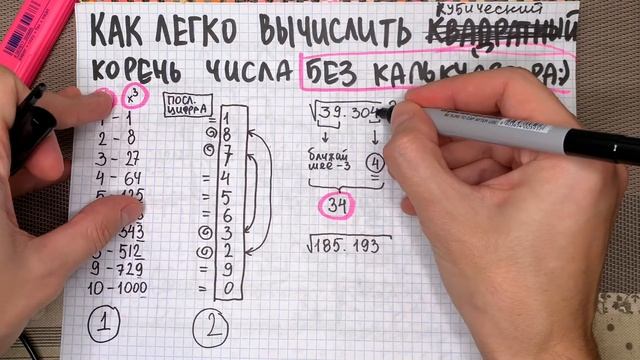 кубический
КАК ЛЕГКО ВЫЧИСЛИТЬ
КОРЕНЬ ЧИСЛА БЕЗ КАЛЬКУЛЯТОРА:)
x³
1 - 1
2 - 8
3 - 27
4 - 64
5 - 125
343
512
9 - 729
10 - 1000
1
ПОСЛ.
ЦИФРА
= 1
8
7
= 4
= 5
= 6
3
2
= 9
= 0
2
√39.304
ближай
шее - 3
4
34
√185.193